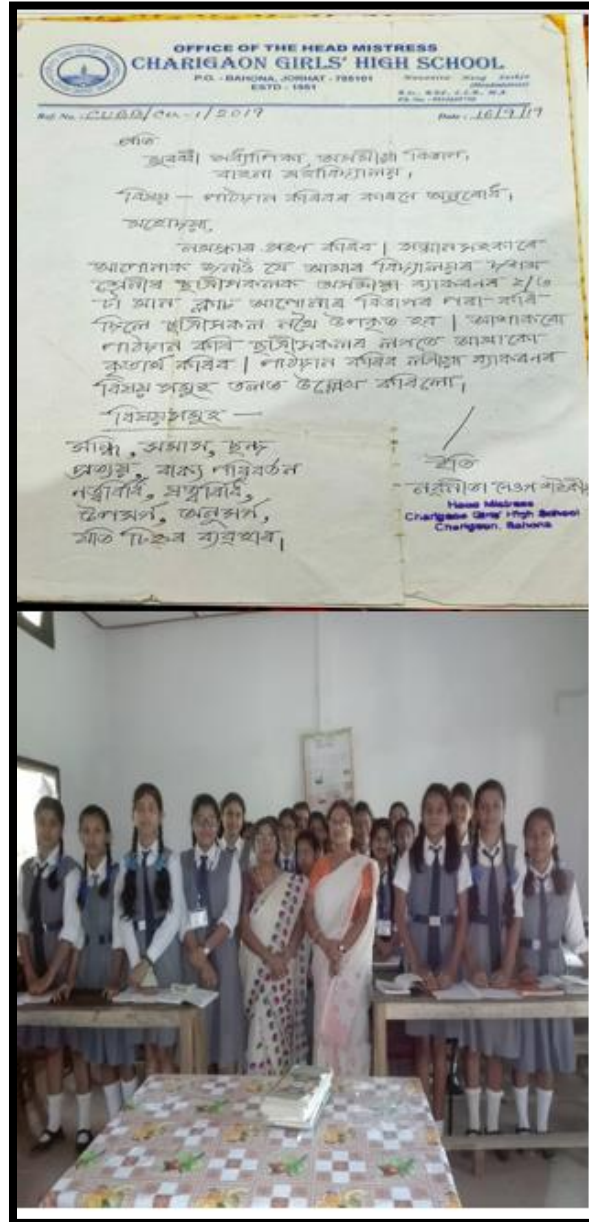 OFFICE OF THE HEAD MISTRESS
CHARIGAON GIRLS' HIGH SCHOOL
P.O. - BAHONA, JORHAT - 785101
ESTD - 1981
Ref. No. Date : 16/9/19
প্ৰতি
মুৰব্বী অধ্যাপিকা, অসমীয়া বিভাগ,
বাহনা মহাবিদ্যালয়,
বিষয় — পাঠদান কৰিবৰ কাৰণে অনুৰোধ।
মহোদয়া,
নমস্কাৰ গ্ৰহণ কৰিব। সন্মানসহকাৰে
আপোনাক জনাওঁ যে আমাৰ বিদ্যালয়ৰ দশম
শ্ৰেণীৰ ছাত্ৰীসকলক অসমীয়া ব্যাকৰণৰ ২/৩
টা মান ক্লাচ আপোনাৰ বিভাগৰ পৰা কৰি
দিলে ছাত্ৰীসকল উপকৃত হব। আশাকৰো
পাঠদান কৰি ছাত্ৰীসকলৰ লগতে আমাকো
কৃতাৰ্থ কৰিব। পাঠদান কৰিব লগীয়া ব্যাকৰণৰ
বিষয় সমূহ তলত উল্লেখ কৰিলো।
বিষয়সমূহ —
সন্ধি, সমাস, ছন্দ
প্ৰত্যয়, বাক্য পৰিবৰ্তন
ণত্ববিধি, ষত্ববিধি,
উপসৰ্গ, অনুসৰ্গ,
যতি চিহ্নৰ ব্যৱহাৰ।
ইতি
Head Mistress
Charigaon Girls' High School
Charigaon, Bahona